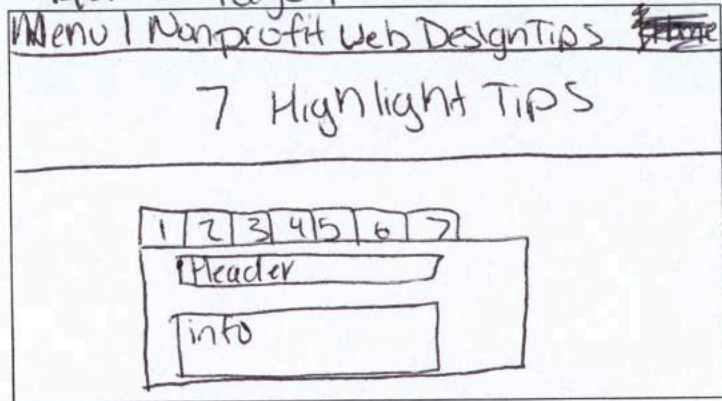 Menu | Nonprofit Web Design Tips
7 Highlight Tips
1 2 3 4 5 6 7
Header
info